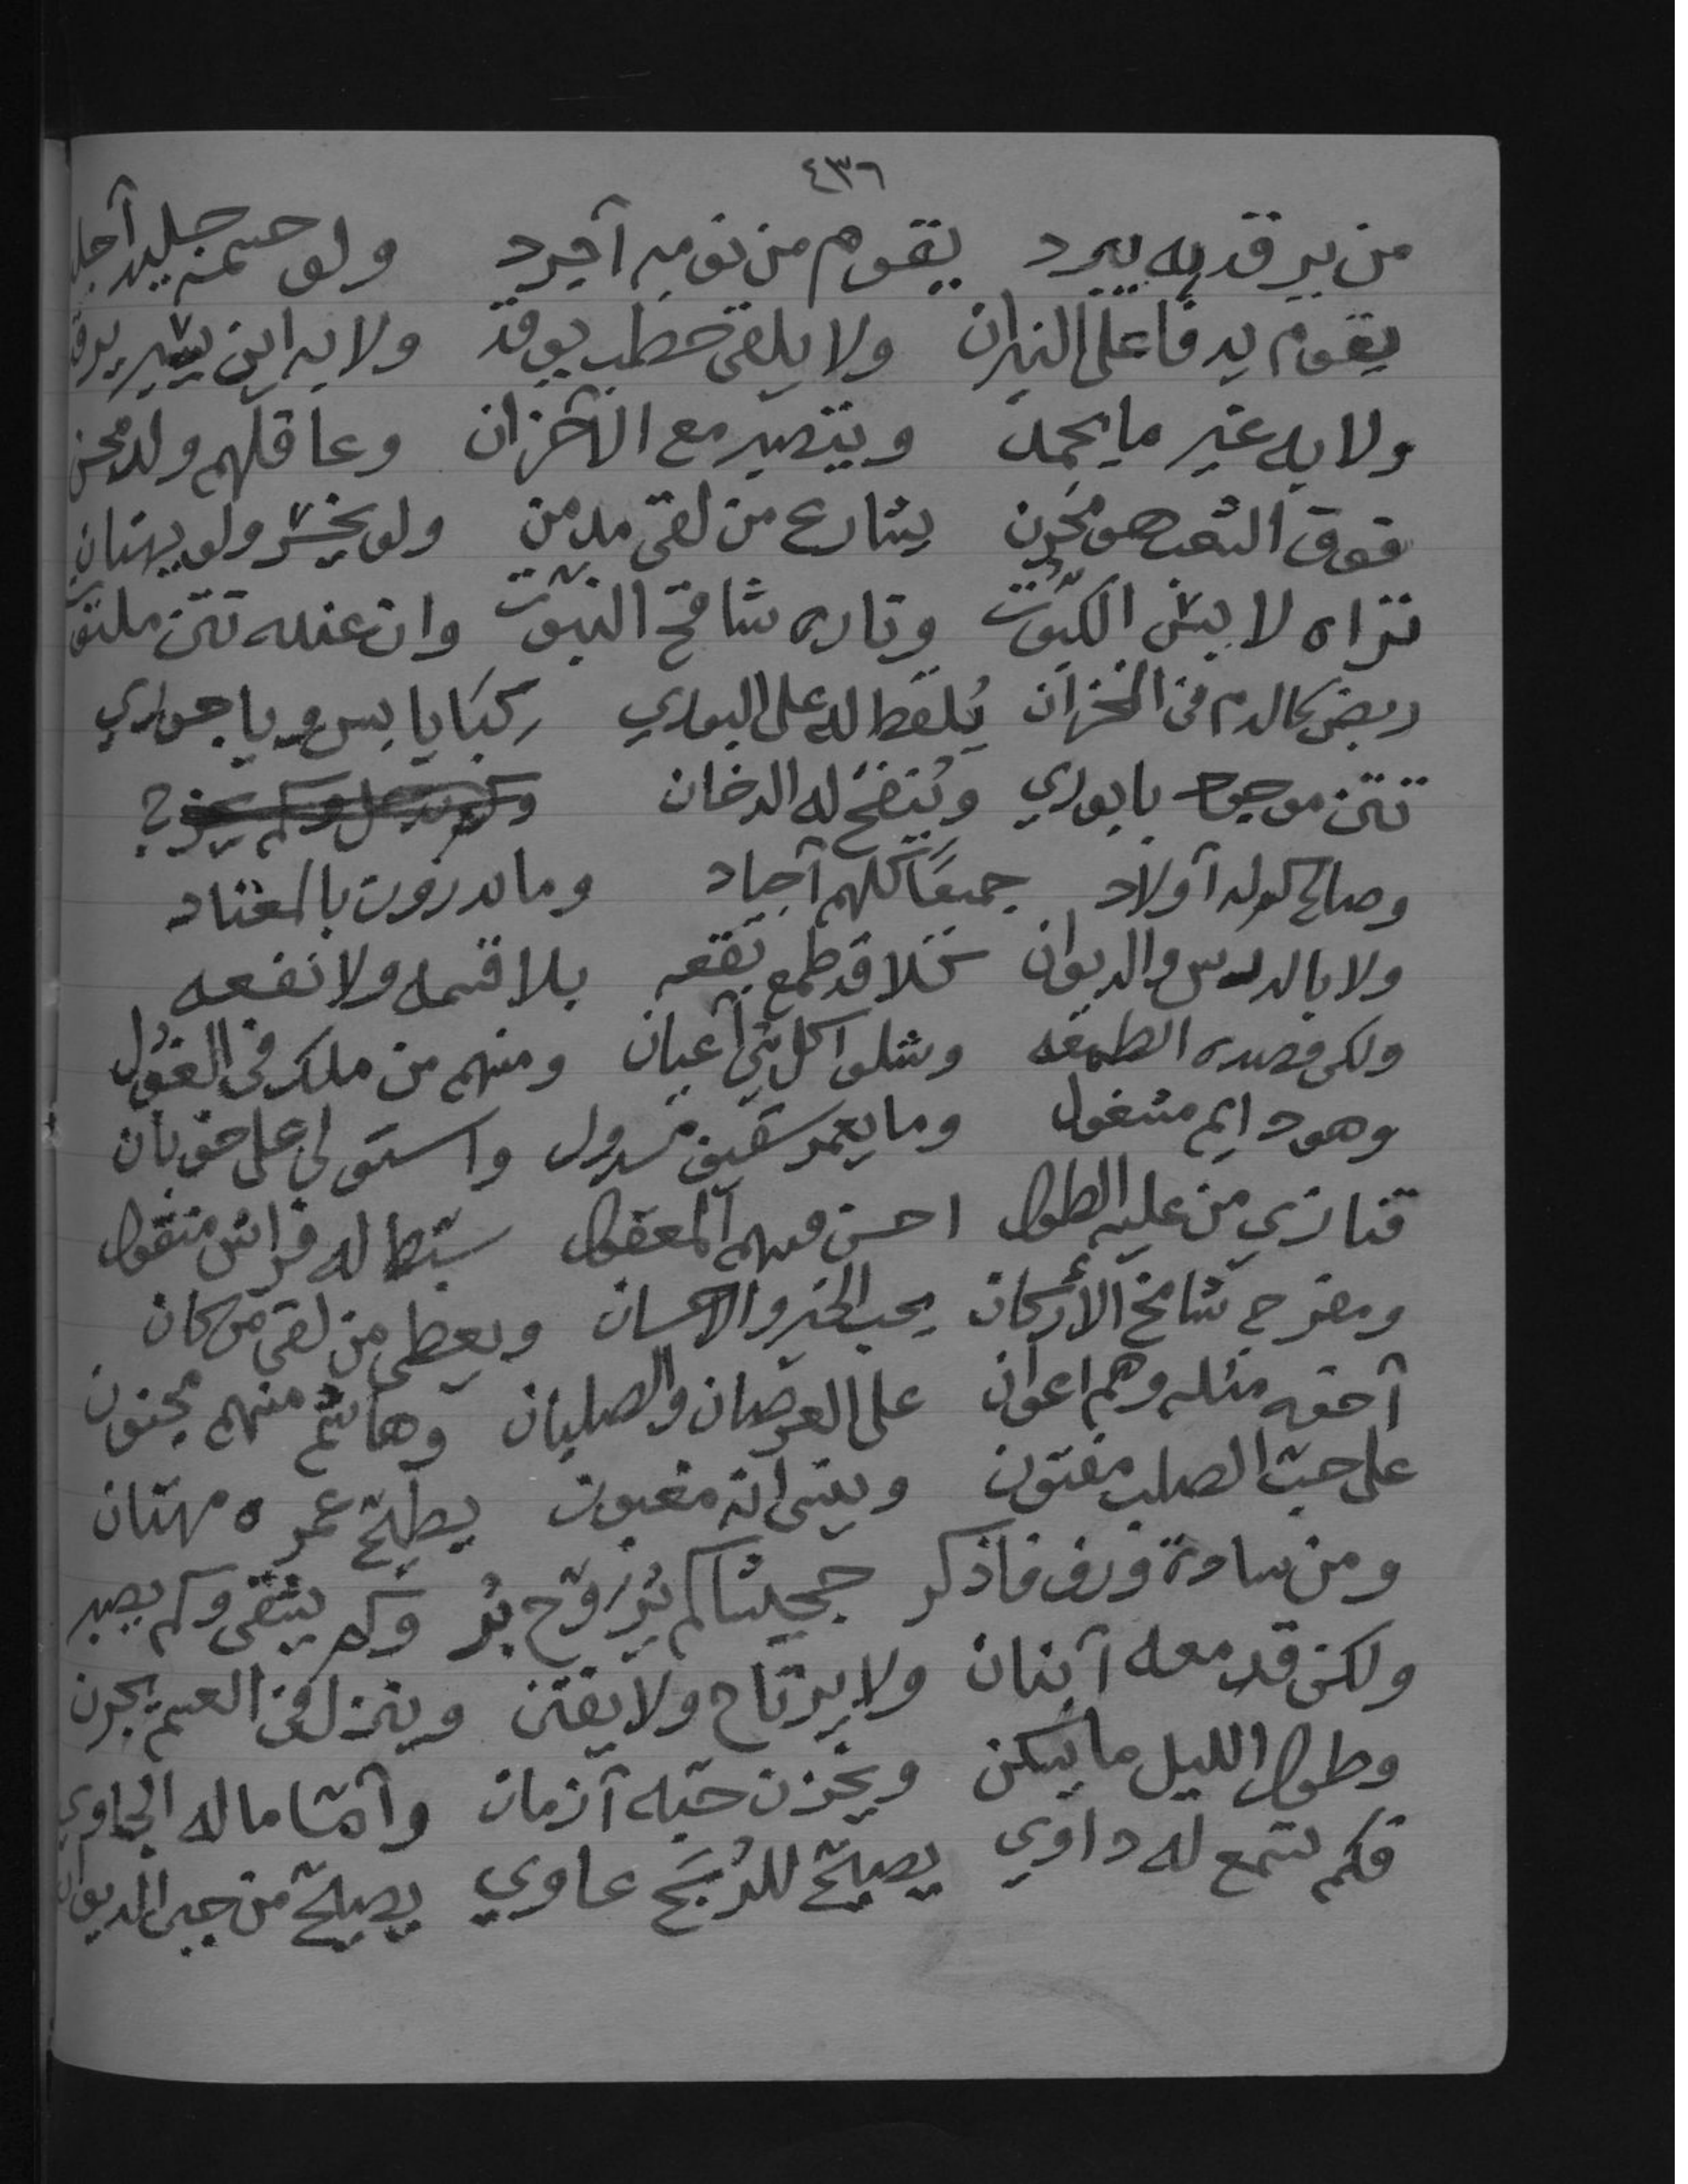 ٤٣٦
من يرقد به يبرد يقوم من نومه آجرد ولو جليد
يقوم يدفا على النيران ولا يلقى حطب يوقد ولا به اين يسير يرقد
ولا به غير ما يحمد ويتصبر مع الآحزان وعاقلهم ولد محسن
فوق التعب هو مخزن يشارع من لقى مدمن ولو يخسر ولو يهتان
تراه لا بيش الكبوت وتاره شامخ النبوت وان عنده تتن
ربض كالدم في المخزان يُلقط له على البوري كبَا يابس ويا جوري
تتن موجود بابوري ويُنفخ له الدخان
وصالح لوله آولاد جميعًا كلهم آجياد وما يدرون بالمعتاد
ولا بالدرس والديوان تخلا قد طمع بقعه بلا قسمه ولا نفعه
ولكن قصده الطمعه وشلوا كل شي آعيان ومنهم من ملك في الغول
وهو دايم مشغول وما يعمر سقيف مسدول واستولى على خوبان
من عليه الطول احسن منهم المعقول له فراش منقول
ومفرج شامخ الأركان يحب الخير والاحسان ويعطي من لقى من كان
آخوه مثله وهم اعوان على العرصان والصلبان وهاشم منهم مجنون
على حب الصلب مفتون وينسى انه مغبون يطيح عمره مهتان
ومن ساده ورف فاذكر كم يُزوّج بُر وكم يشقى وكم يصبر
ولكن قد معه آبنان ولا يرتاح ولا يفتن وينزل في يجرن
وطول الليل ما يسكن ويخزن حبّه آزمان وآمّا ماله الجاوي
فكم تسمع له داوي يصيّح للرُبَح عاوي يصيّح من الديوان